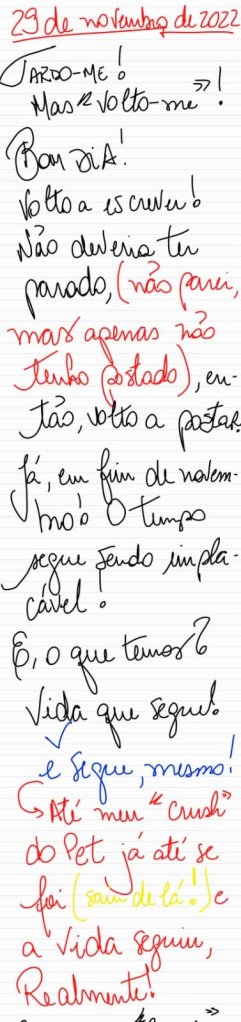 29 de novembro de 2022
TARDO-ME!
Mas "volto-me"!
Bom DiA!
Volto a escrever!
Não deveria ter
parado, (não parei,
mas apenas não
tenho postado), en-
tão, volto a postar.
Já, em fim de novem-
bro! O tempo
segue sendo impla-
cável!
E, o que temos?
Vida que segue!
e segue, mesmo!
Até meu "crush"
do Pet já até se
foi (saiu de lá!) e
a vida seguiu,
Realmente!